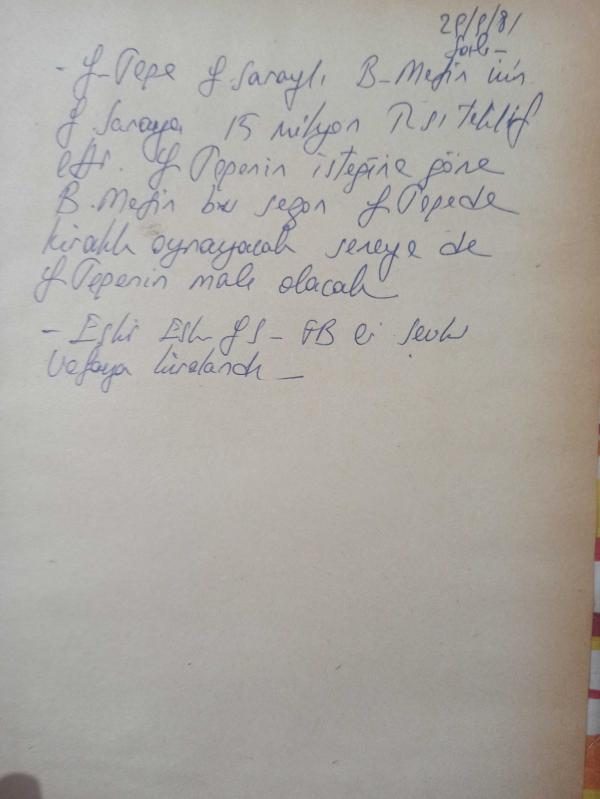 29/9/81
Salı -
- G-Tepe G.Saraylı B-Metin için
G Saraya 15 milyon TLsı teklif
etti. G Tepenin isteğine göre
B.Metin bu sezon G Tepede
kiralık oynayacak seneye de
G Tepenin malı olacak
- Eski Esk GS - FB li Sevki
Vefaya kiralandı -